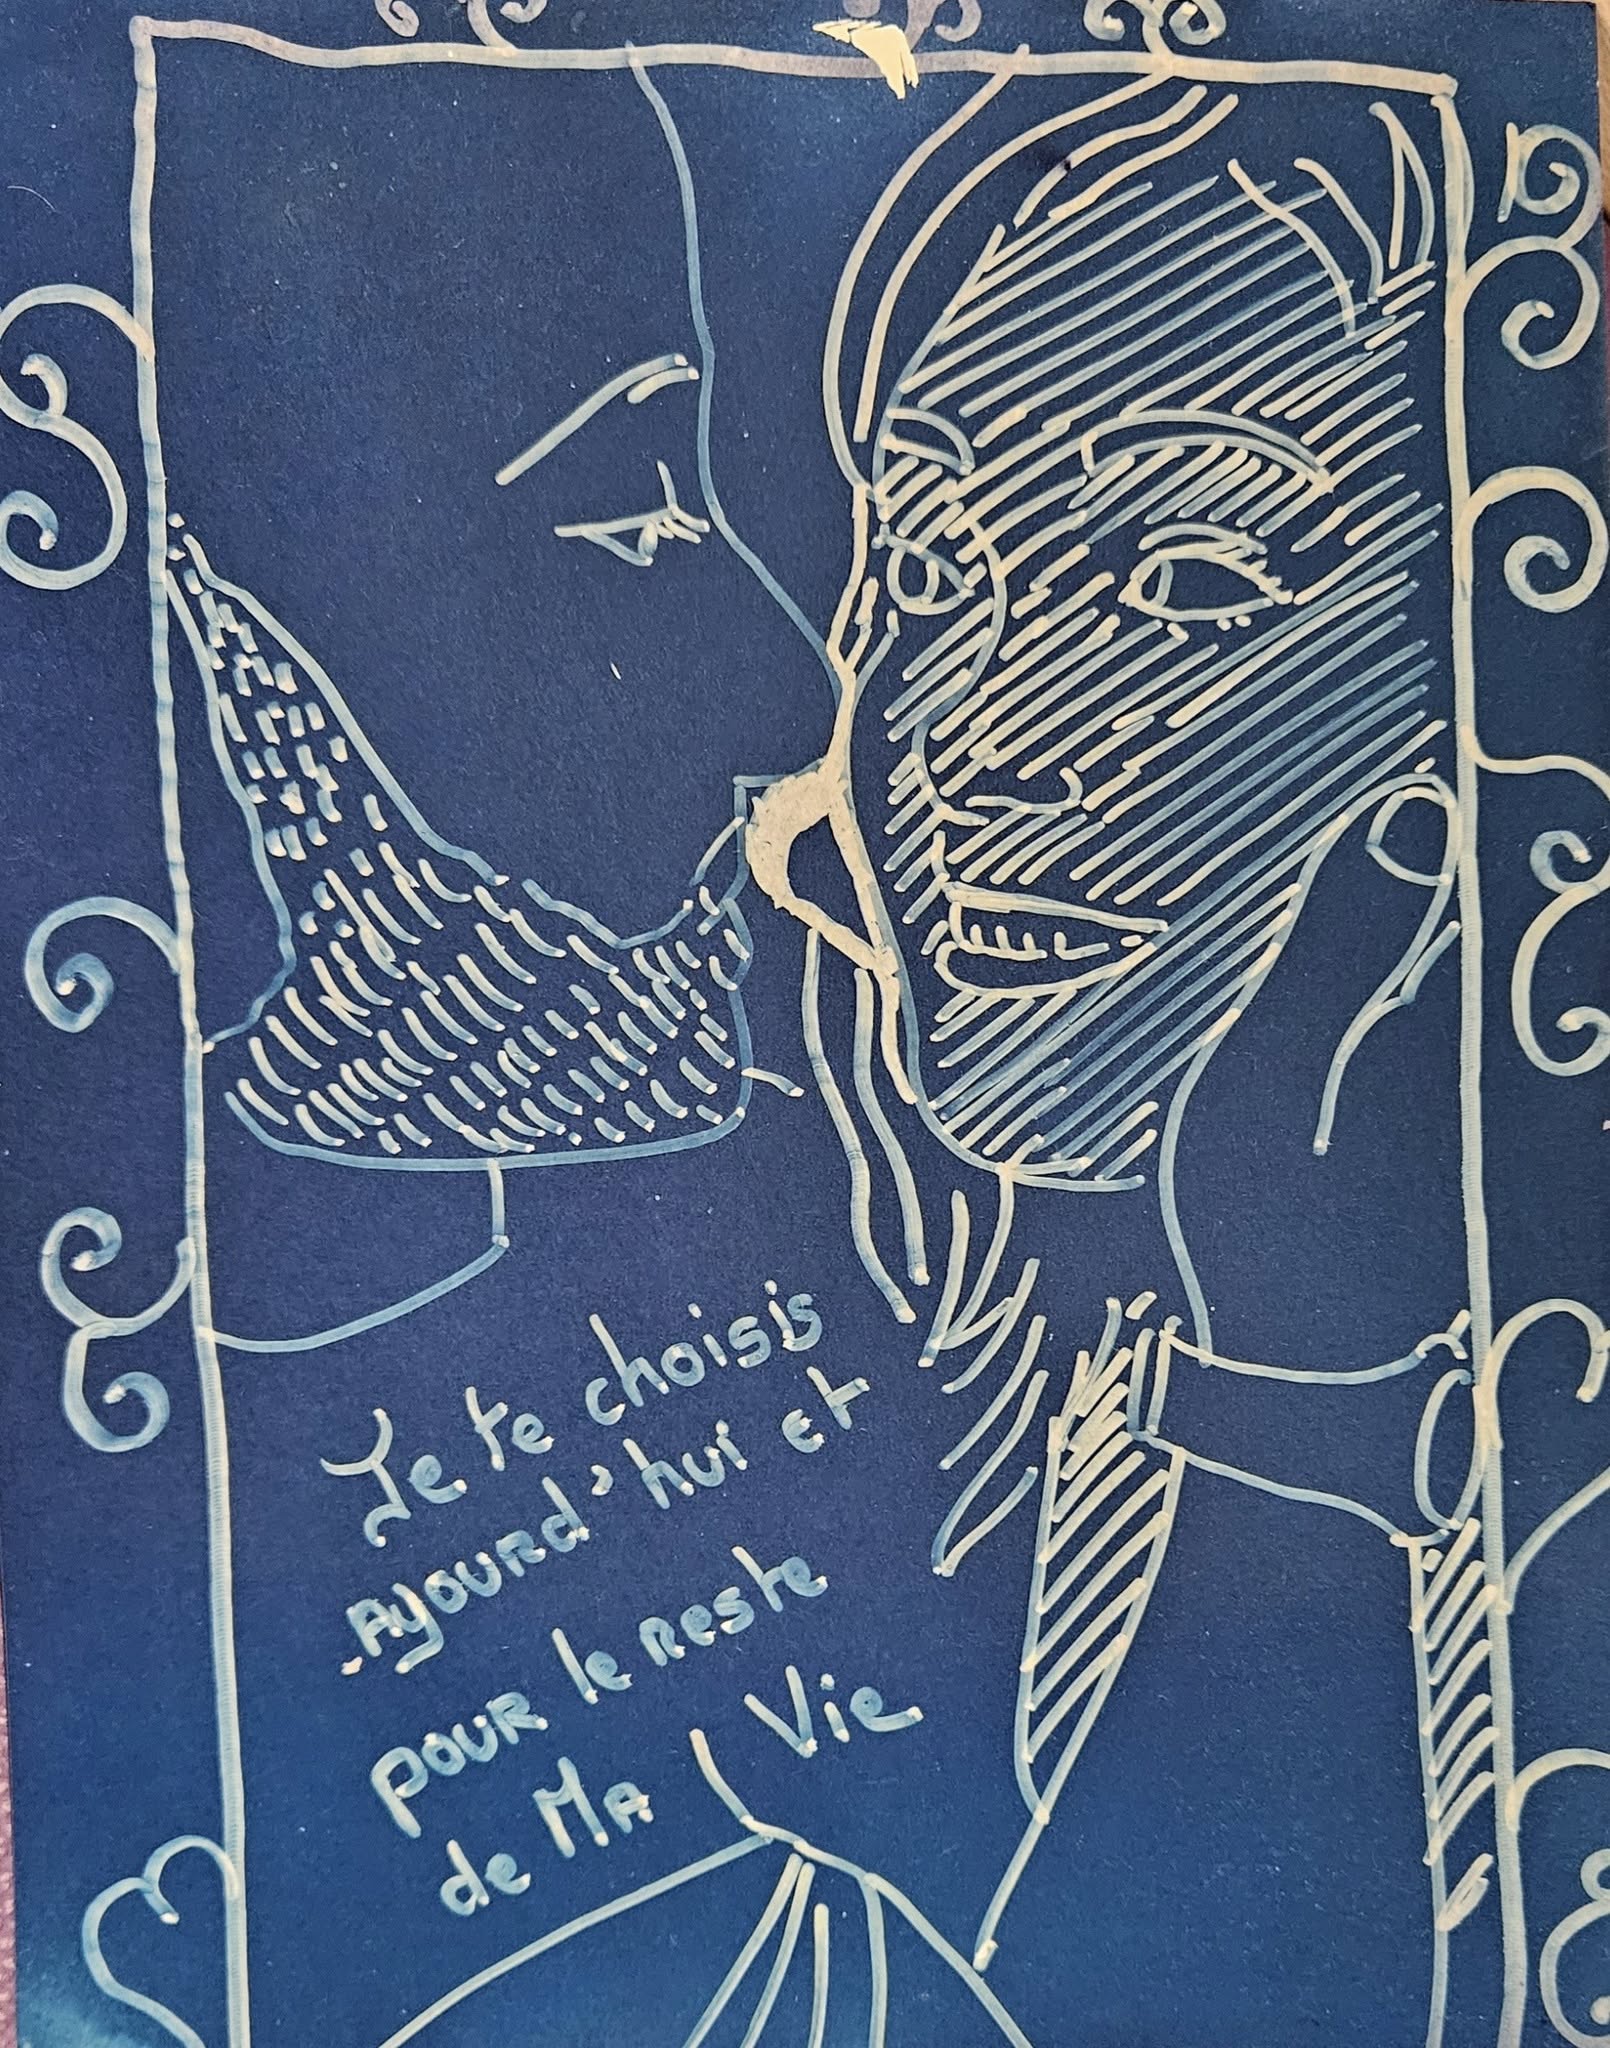 Je te choisis
Ajourd'hui et
pour le reste
de Ma Vie